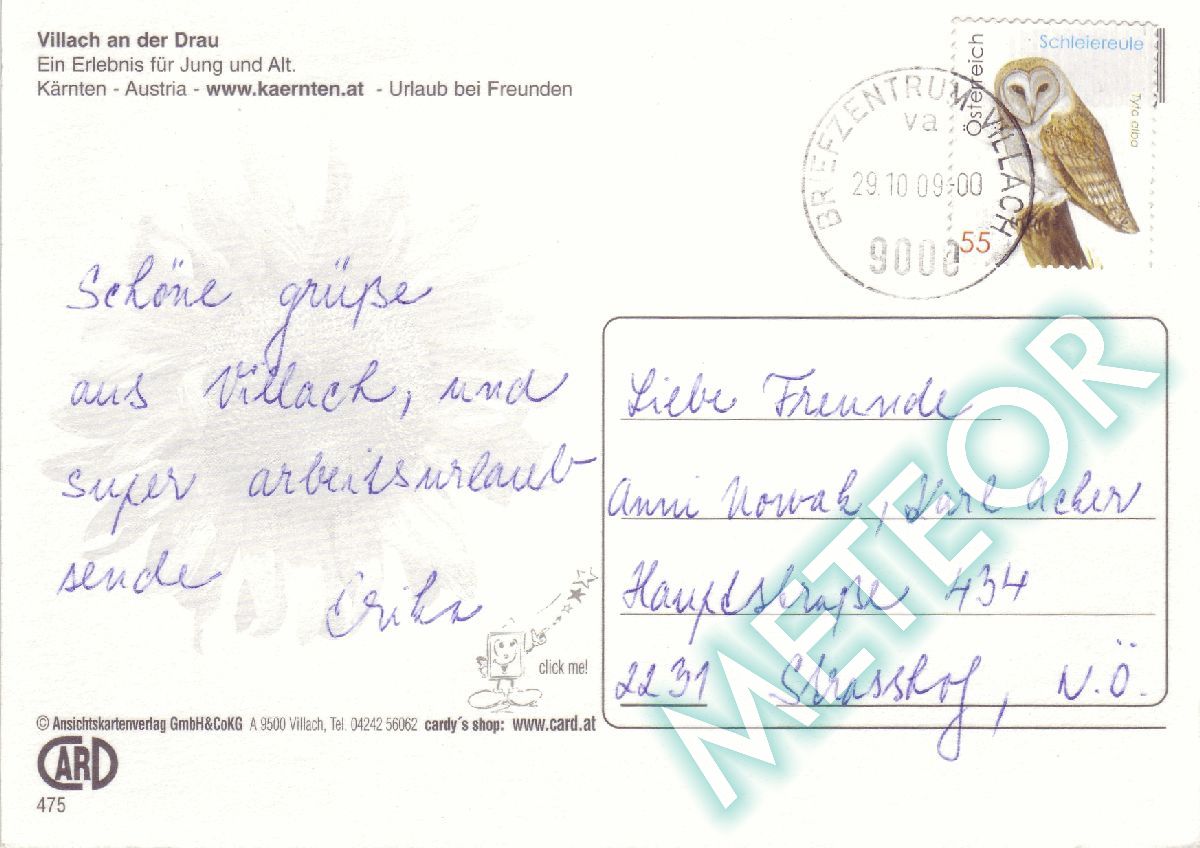 Villach an der Drau
Ein Erlebnis für Jung und Alt.
Kärnten - Austria - www.kaernten.at - Urlaub bei Freunden
Österreich
Schleiereule
Tyto alba
55
BRIEFZENTRUM VILLACH
va
29.10 09-00
9000
Schöne grüße
aus Villach, und
super arbeitsurlaub
sende
Erika
Liebe Freunde
Anni Nowak, Karl Acker
Hauptstraße 434
2231 Strasshof, N.Ö.
click me!
© Ansichtskartenverlag GmbH&CoKG A 9500 Villach, Tel. 04242 56062 cardy´s shop: www.card.at
CARD
475
METEOR